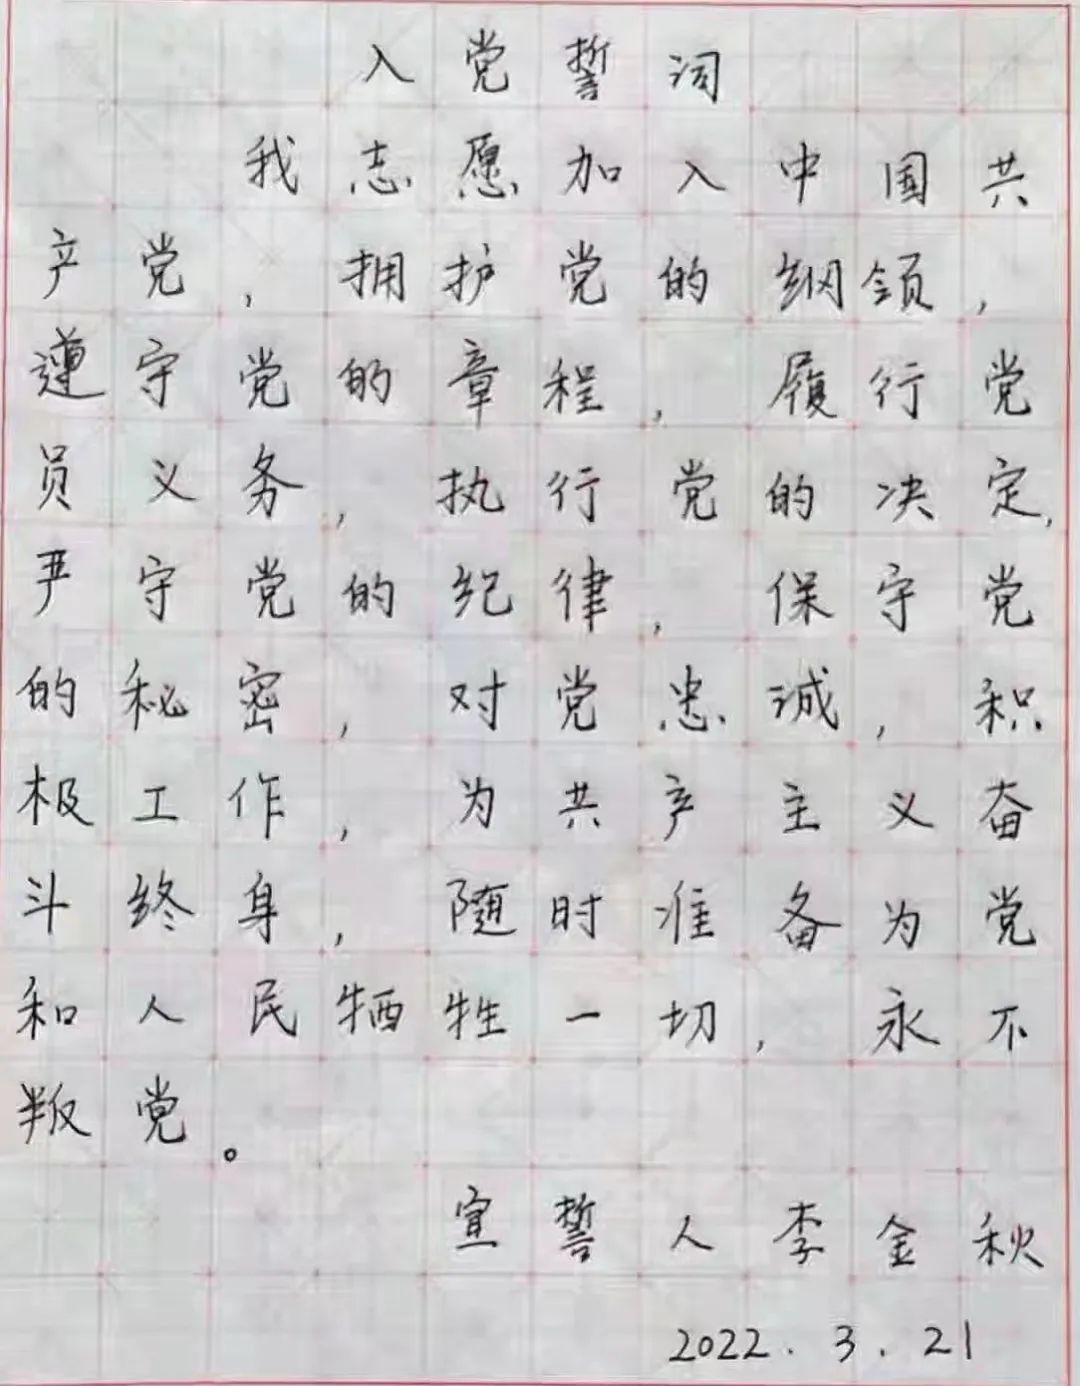 入党誓词
我志愿加入中国共
产党，拥护党的纲领，
遵守党的章程，履行党
员义务，执行党的决定，
严守党的纪律，保守党
的秘密，对党忠诚，积
极工作，为共产主义奋
斗终身，随时准备为党
和人民牺牲一切，永不
叛党。
宣誓人李金秋
2022.3.21